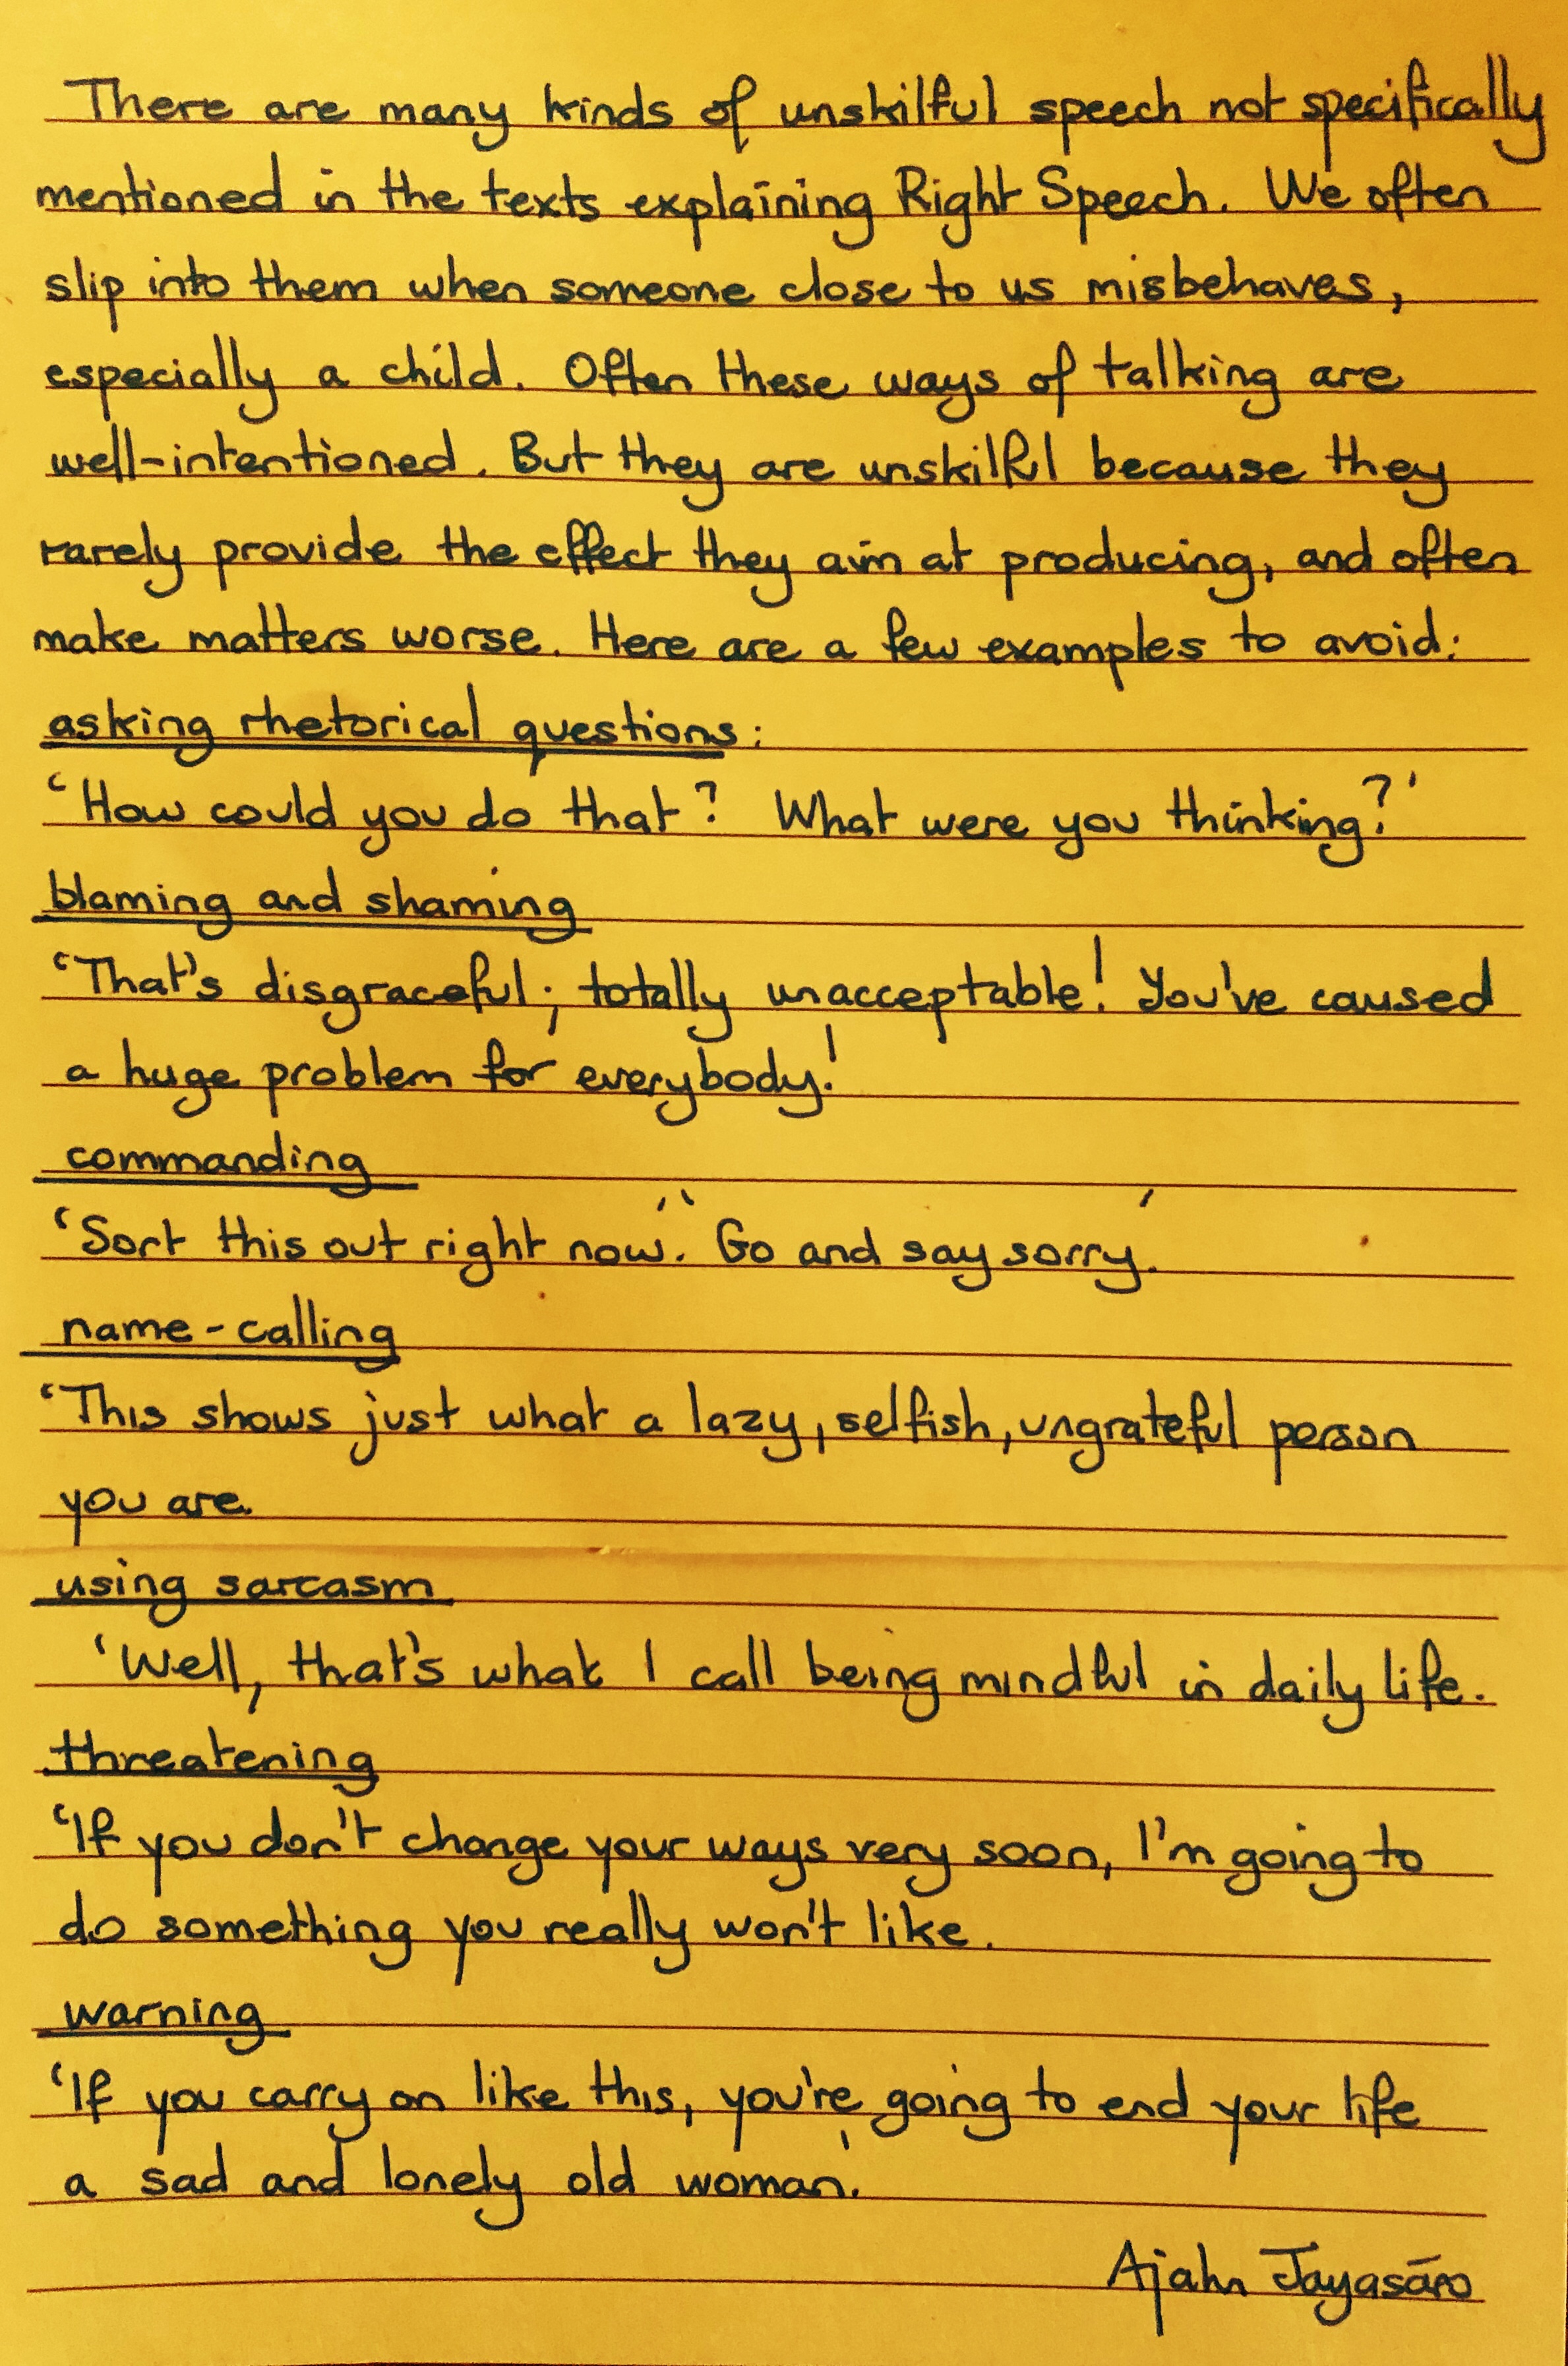 There are many kinds of unskilful speech not specifically
mentioned in the texts explaining Right Speech. We often
slip into them when someone close to us misbehaves,
especially a child. Often these ways of talking are
well-intentioned. But they are unskilful because they
rarely provide the effect they aim at producing, and often
make matters worse. Here are a few examples to avoid:
asking rhetorical questions:
‘How could you do that? What were you thinking?’
blaming and shaming
‘That's disgraceful; totally unacceptable! You've caused
a huge problem for everybody!
commanding
‘Sort this out right now.’ ‘Go and say sorry.’
name-calling
‘This shows just what a lazy, selfish, ungrateful person
you are.
using sarcasm
‘Well, that's what I call being mindful in daily life.
threatening
‘If you don't change your ways very soon, I'm going to
do something you really won't like.
warning
‘If you carry on like this, you're going to end your life
a sad and lonely old woman.’
Ajahn Jayasāro